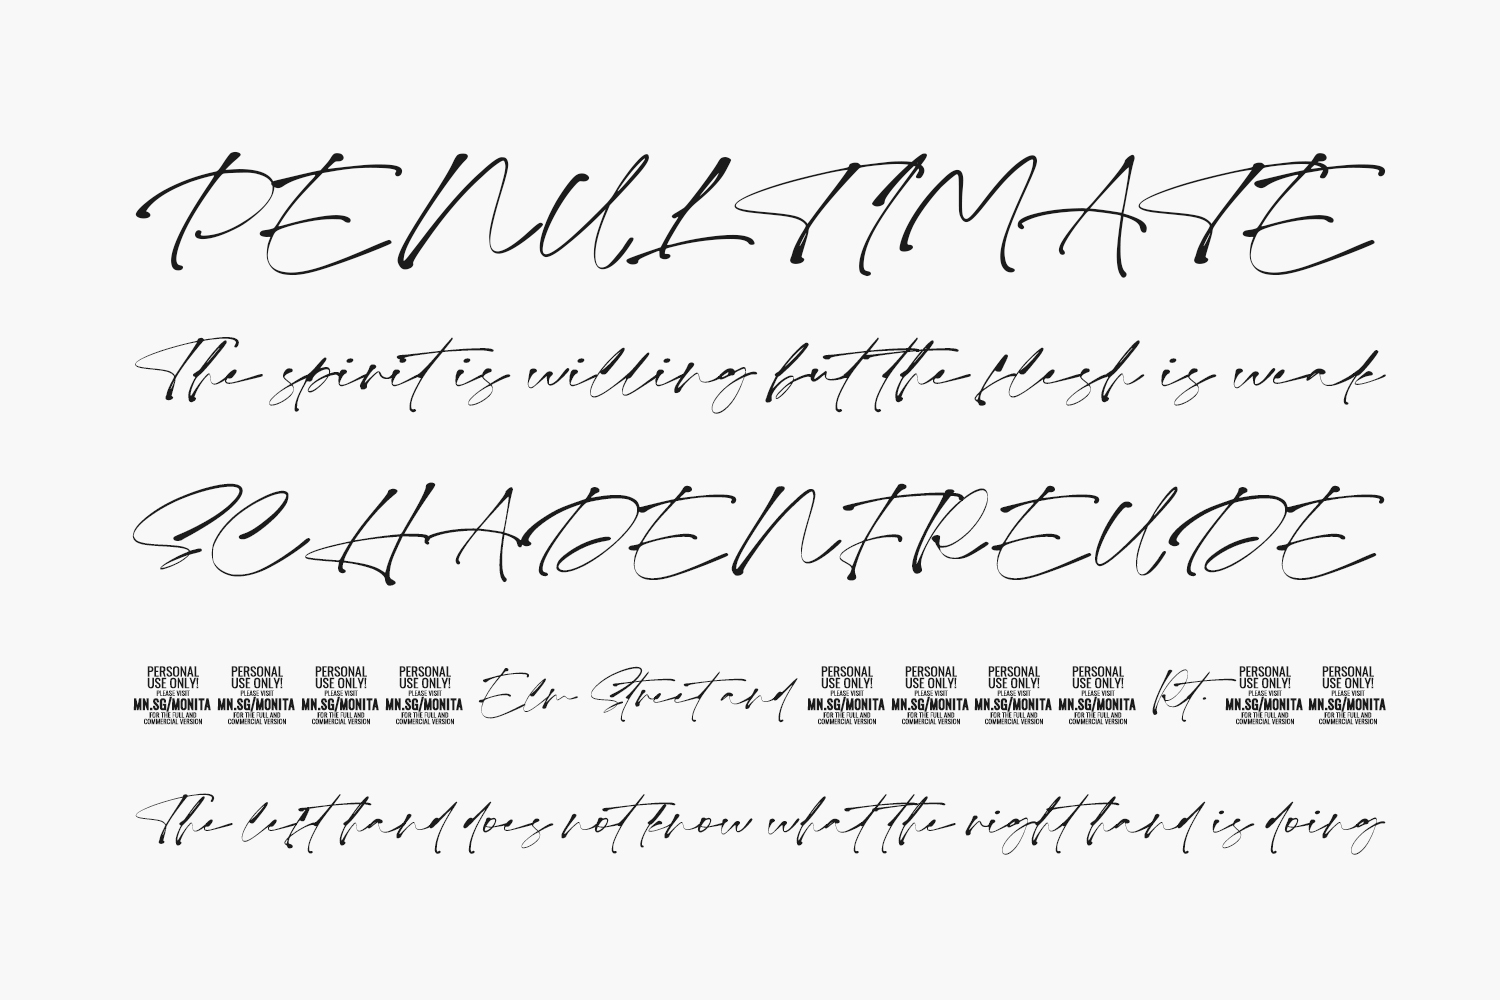 PENULTIMATE
The spirit is willing but the flesh is weak
SCHADENFREUDE
PERSONAL USE ONLY! PLEASE VISIT MN.SG/MONITA FOR THE FULL AND COMMERCIAL VERSION PERSONAL USE ONLY! PLEASE VISIT MN.SG/MONITA FOR THE FULL AND COMMERCIAL VERSION PERSONAL USE ONLY! PLEASE VISIT MN.SG/MONITA FOR THE FULL AND COMMERCIAL VERSION PERSONAL USE ONLY! PLEASE VISIT MN.SG/MONITA FOR THE FULL AND COMMERCIAL VERSION Elm Street and PERSONAL USE ONLY! PLEASE VISIT MN.SG/MONITA FOR THE FULL AND COMMERCIAL VERSION PERSONAL USE ONLY! PLEASE VISIT MN.SG/MONITA FOR THE FULL AND COMMERCIAL VERSION PERSONAL USE ONLY! PLEASE VISIT MN.SG/MONITA FOR THE FULL AND COMMERCIAL VERSION PERSONAL USE ONLY! PLEASE VISIT MN.SG/MONITA FOR THE FULL AND COMMERCIAL VERSION Rt. PERSONAL USE ONLY! PLEASE VISIT MN.SG/MONITA FOR THE FULL AND COMMERCIAL VERSION PERSONAL USE ONLY! PLEASE VISIT MN.SG/MONITA FOR THE FULL AND COMMERCIAL VERSION
The left hand does not know what the right hand is doing